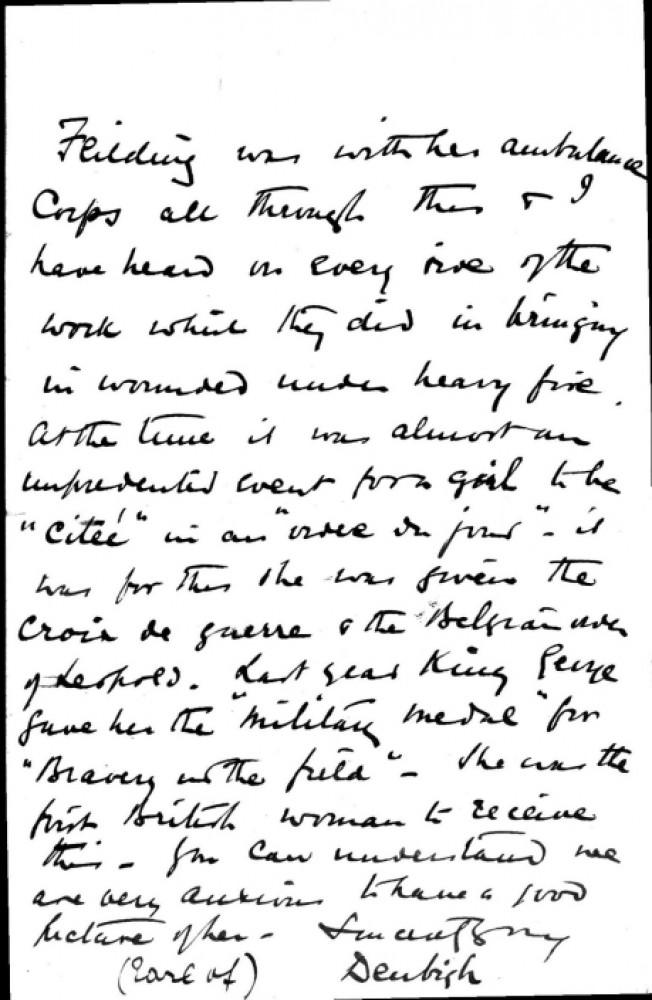 Feilding was with her ambulance
Corps all through this & I
have heard on every side of the
work which they did in bringing
in wounded under heavy fire.
At the time it was almost an
unprecented event for a girl to be
"Citée" in an "ordre du jour" - it
was for this she was given the
Croix de guerre & the Belgian order
of Leopold. Last year King George
gave her the "Military medal" for
"Bravery in the field" - She was the
first British woman to receive
this - You can understand we
are very anxious to have a good
picture of her - Sincerely
(Earl of) Denbigh